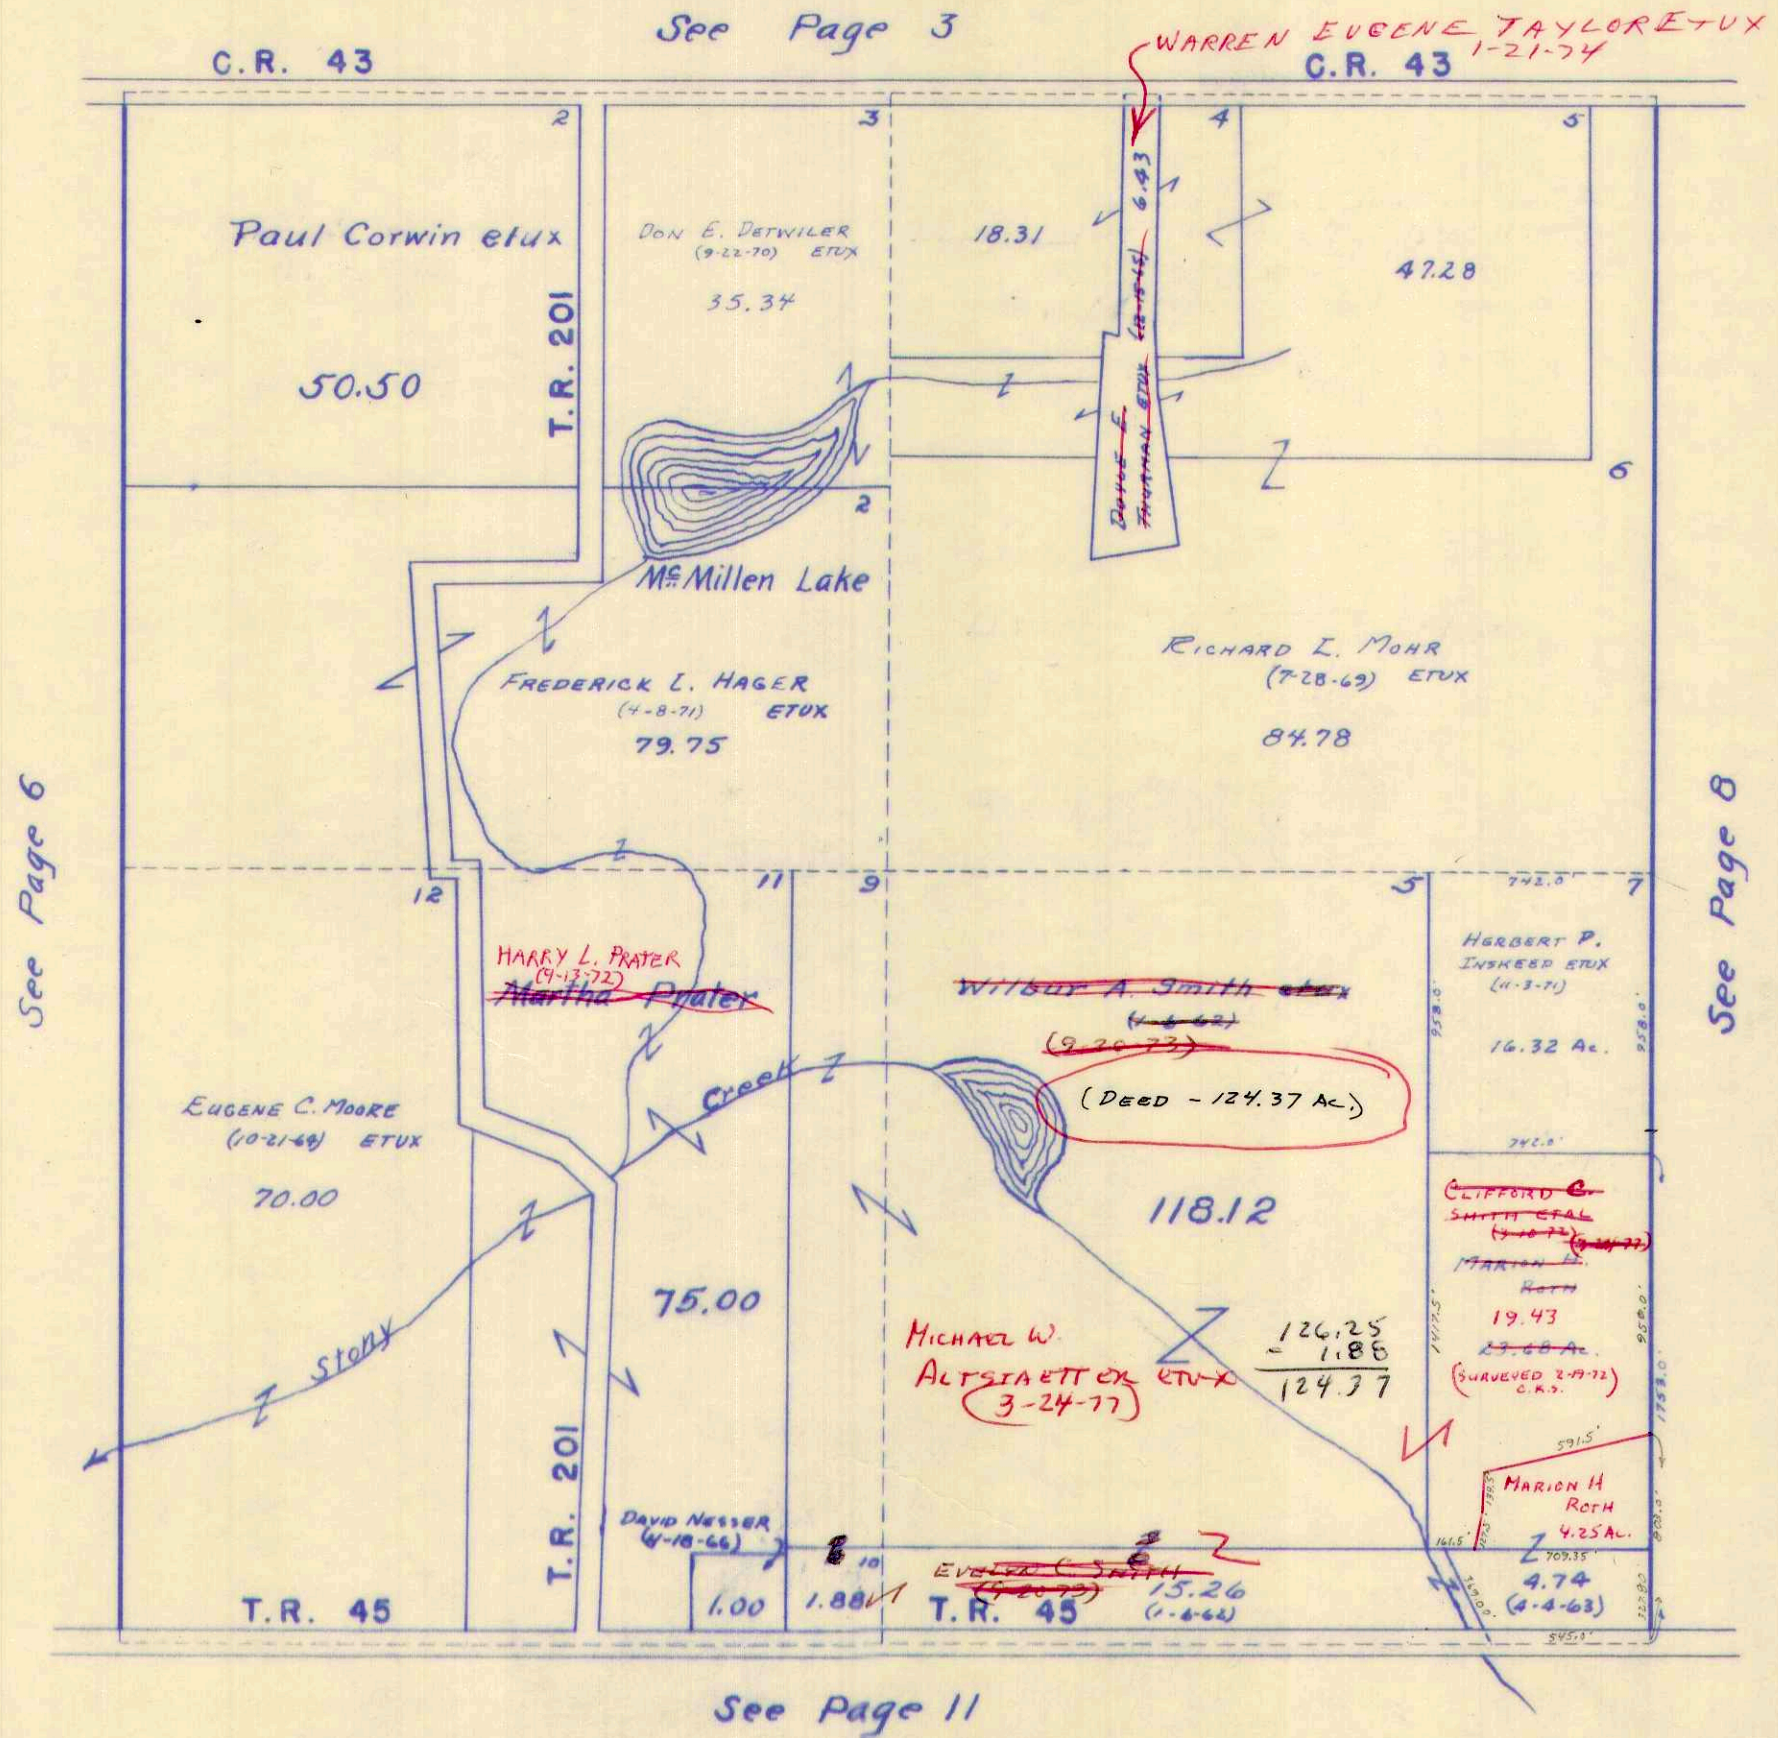 See Page 3
WARREN EUGENE TAYLOR ETUX
1-21-74
C.R. 43
C.R. 43
2
3
4
5
Paul Corwin etux
50.50
T.R. 201
DON E. DETWILER
(9-22-70) ETUX
35.34
18.31
6.43
(12-15-65)
DOYLE E.
THURMAN ETUX
47.28
6
2
McMillen Lake
FREDERICK L. HAGER
(4-8-71) ETUX
79.75
RICHARD L. MOHR
(7-28-69) ETUX
84.78
See Page 6
See Page 8
12
11
9
5
742.0'
7
HARRY L. PRATER
(4-13-72)
Martha Prater
Wilbur A. Smith etux
(1-6-62)
(9-20-73)
(DEED - 124.37 AC.)
118.12
HERBERT P.
INSKEEP ETUX
(11-3-71)
16.32 Ac.
958.0'
958.0'
742.0'
EUGENE C. MOORE
(10-21-64) ETUX
70.00
Creek
Stony
75.00
CLIFFORD C.
SMITH ETAL
(3-10-72)
MARION H.
ROTH
19.43
23.68 Ac.
(SURVEYED 2-19-72)
C.K.S.
1417.5'
950.0'
1753.0'
MICHAEL W.
ALTSTAETTER ETUX
(3-24-77)
126.25
- 1.88
124.37
591.5'
MARION H
ROTH
4.25 AC.
803.0'
161.5'
709.35'
T.R. 201
DAVID NESSER
(4-18-66)
1.00
10
1.88
EVELYN C SMITH
(9-20-73)
15.26
(1-6-62)
4.74
(4-4-63)
545.0'
T.R. 45
T.R. 45
See Page 11